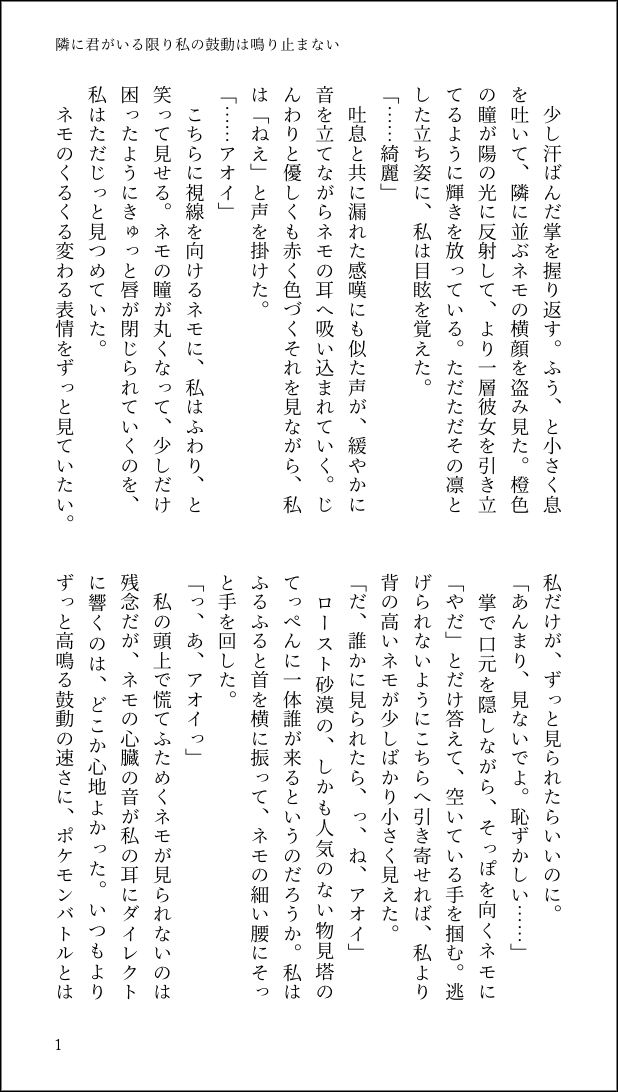 隣に君がいる限り私の鼓動は鳴り止まない
　少し汗ばんだ掌を握り返す。ふう、と小さく息
を吐いて、隣に並ぶネモの横顔を盗み見た。橙色
の瞳が陽の光に反射して、より一層彼女を引き立
てるように輝きを放っている。ただただその凛と
した立ち姿に、私は目眩を覚えた。
「……綺麗」
　吐息と共に漏れた感嘆にも似た声が、緩やかに
音を立てながらネモの耳へ吸い込まれていく。じ
んわりと優しくも赤く色づくそれを見ながら、私
は「ねえ」と声を掛けた。
「……アオイ」
　こちらに視線を向けるネモに、私はふわり、と
笑って見せる。ネモの瞳が丸くなって、少しだけ
困ったようにきゅっと唇が閉じられていくのを、
私はただじっと見つめていた。
　ネモのくるくる変わる表情をずっと見ていたい。
私だけが、ずっと見られたらいいのに。
「あんまり、見ないでよ。恥ずかしい……」
　掌で口元を隠しながら、そっぽを向くネモに
「やだ」とだけ答えて、空いている手を掴む。逃
げられないようにこちらへ引き寄せれば、私より
背の高いネモが少しばかり小さく見えた。
「だ、誰かに見られたら、っ、ね、アオイ」
　ロースト砂漠の、しかも人気のない物見塔の
てっぺんに一体誰が来るというのだろうか。私は
ふるふると首を横に振って、ネモの細い腰にそっ
と手を回した。
「っ、あ、アオイっ」
　私の頭上で慌てふためくネモが見られないのは
残念だが、ネモの心臓の音が私の耳にダイレクト
に響くのは、どこか心地よかった。いつもより
ずっと高鳴る鼓動の速さに、ポケモンバトルとは
1